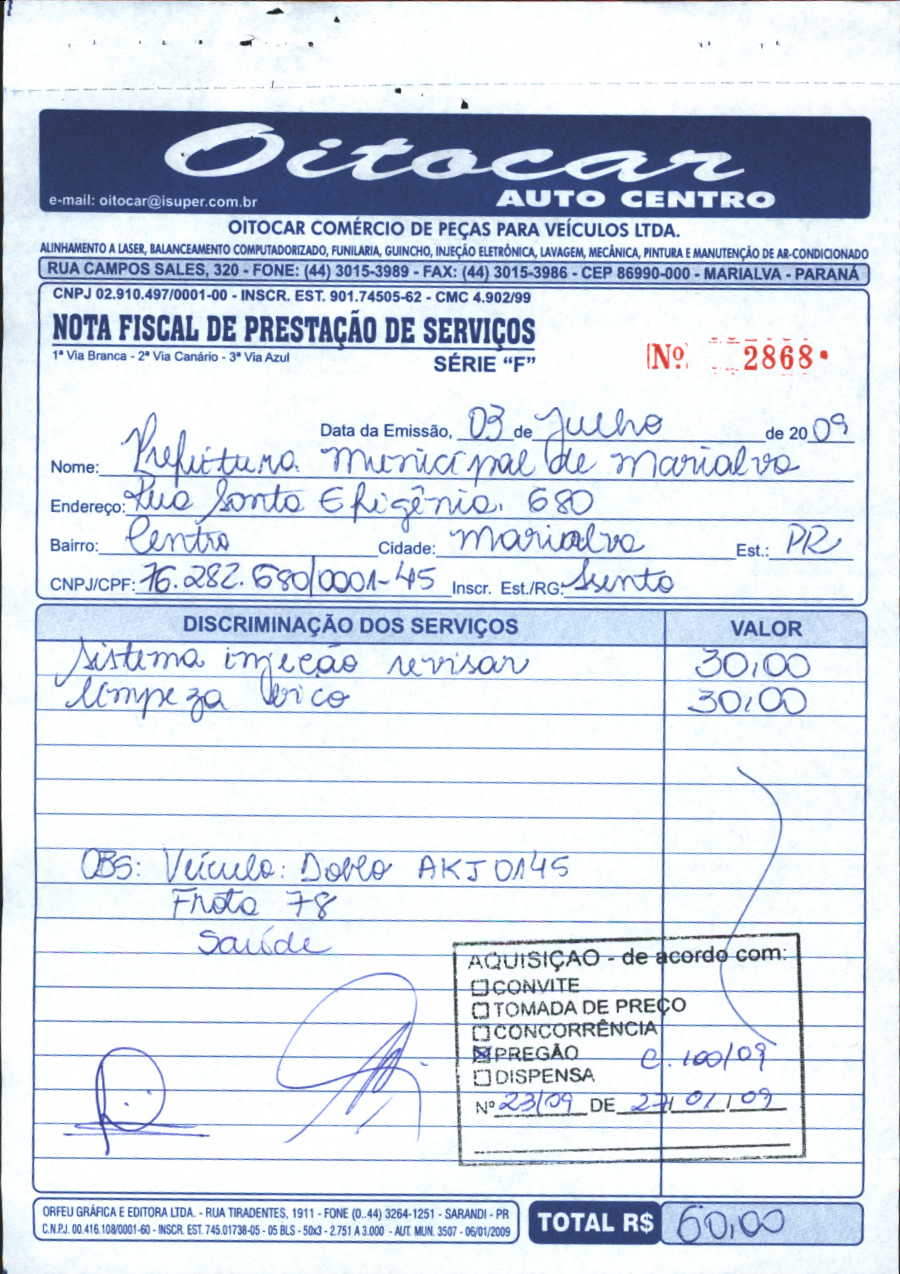 Oitocar
AUTO CENTRO
e-mail: oitocar@isuper.com.br
OITOCAR COMÉRCIO DE PEÇAS PARA VEÍCULOS LTDA.
ALINHAMENTO A LASER, BALANCEAMENTO COMPUTADORIZADO, FUNILARIA, GUINCHO, INJEÇÃO ELETRÔNICA, LAVAGEM, MECÂNICA, PINTURA E MANUTENÇÃO DE AR-CONDICIONADO
RUA CAMPOS SALES, 320 - FONE: (44) 3015-3989 - FAX: (44) 3015-3986 - CEP 86990-000 - MARIALVA - PARANÁ
CNPJ 02.910.497/0001-00 - INSCR. EST. 901.74505-62 - CMC 4.902/99
NOTA FISCAL DE PRESTAÇÃO DE SERVIÇOS
1ª Via Branca - 2ª Via Canário - 3ª Via Azul
SÉRIE “F”
Nº 2868
Data da Emissão, 03 de Julho de 2009
Nome: Prefeitura Municipal de Marialva
Endereço: Rua Santa Efigênia. 680
Bairro: Centro Cidade: Marialva Est.: PR
CNPJ/CPF: 76.282.680/0001-45 Inscr. Est./RG: Isento
DISCRIMINAÇÃO DOS SERVIÇOS VALOR
Sistema injeção revisar 30,00
limpeza bico 30,00
OBS: Veículo: Doblo AKJ0145
Frota 78
Saúde
AQUISIÇÃO - de acordo com:
CONVITE
TOMADA DE PREÇO
CONCORRÊNCIA
PREGÃO C. 100/09
DISPENSA
Nº 23/09 DE 27/01/09
ORFEU GRÁFICA E EDITORA LTDA. - RUA TIRADENTES, 1911 - FONE (0..44) 3264-1251 - SARANDI - PR
C.N.P.J. 00.416.108/0001-60 - INSCR. EST. 745.01738-05 - 05 BLS - 50x3 - 2.751 A 3.000 - AUT. MUN. 3507 - 06/01/2009
TOTAL R$ 60,00